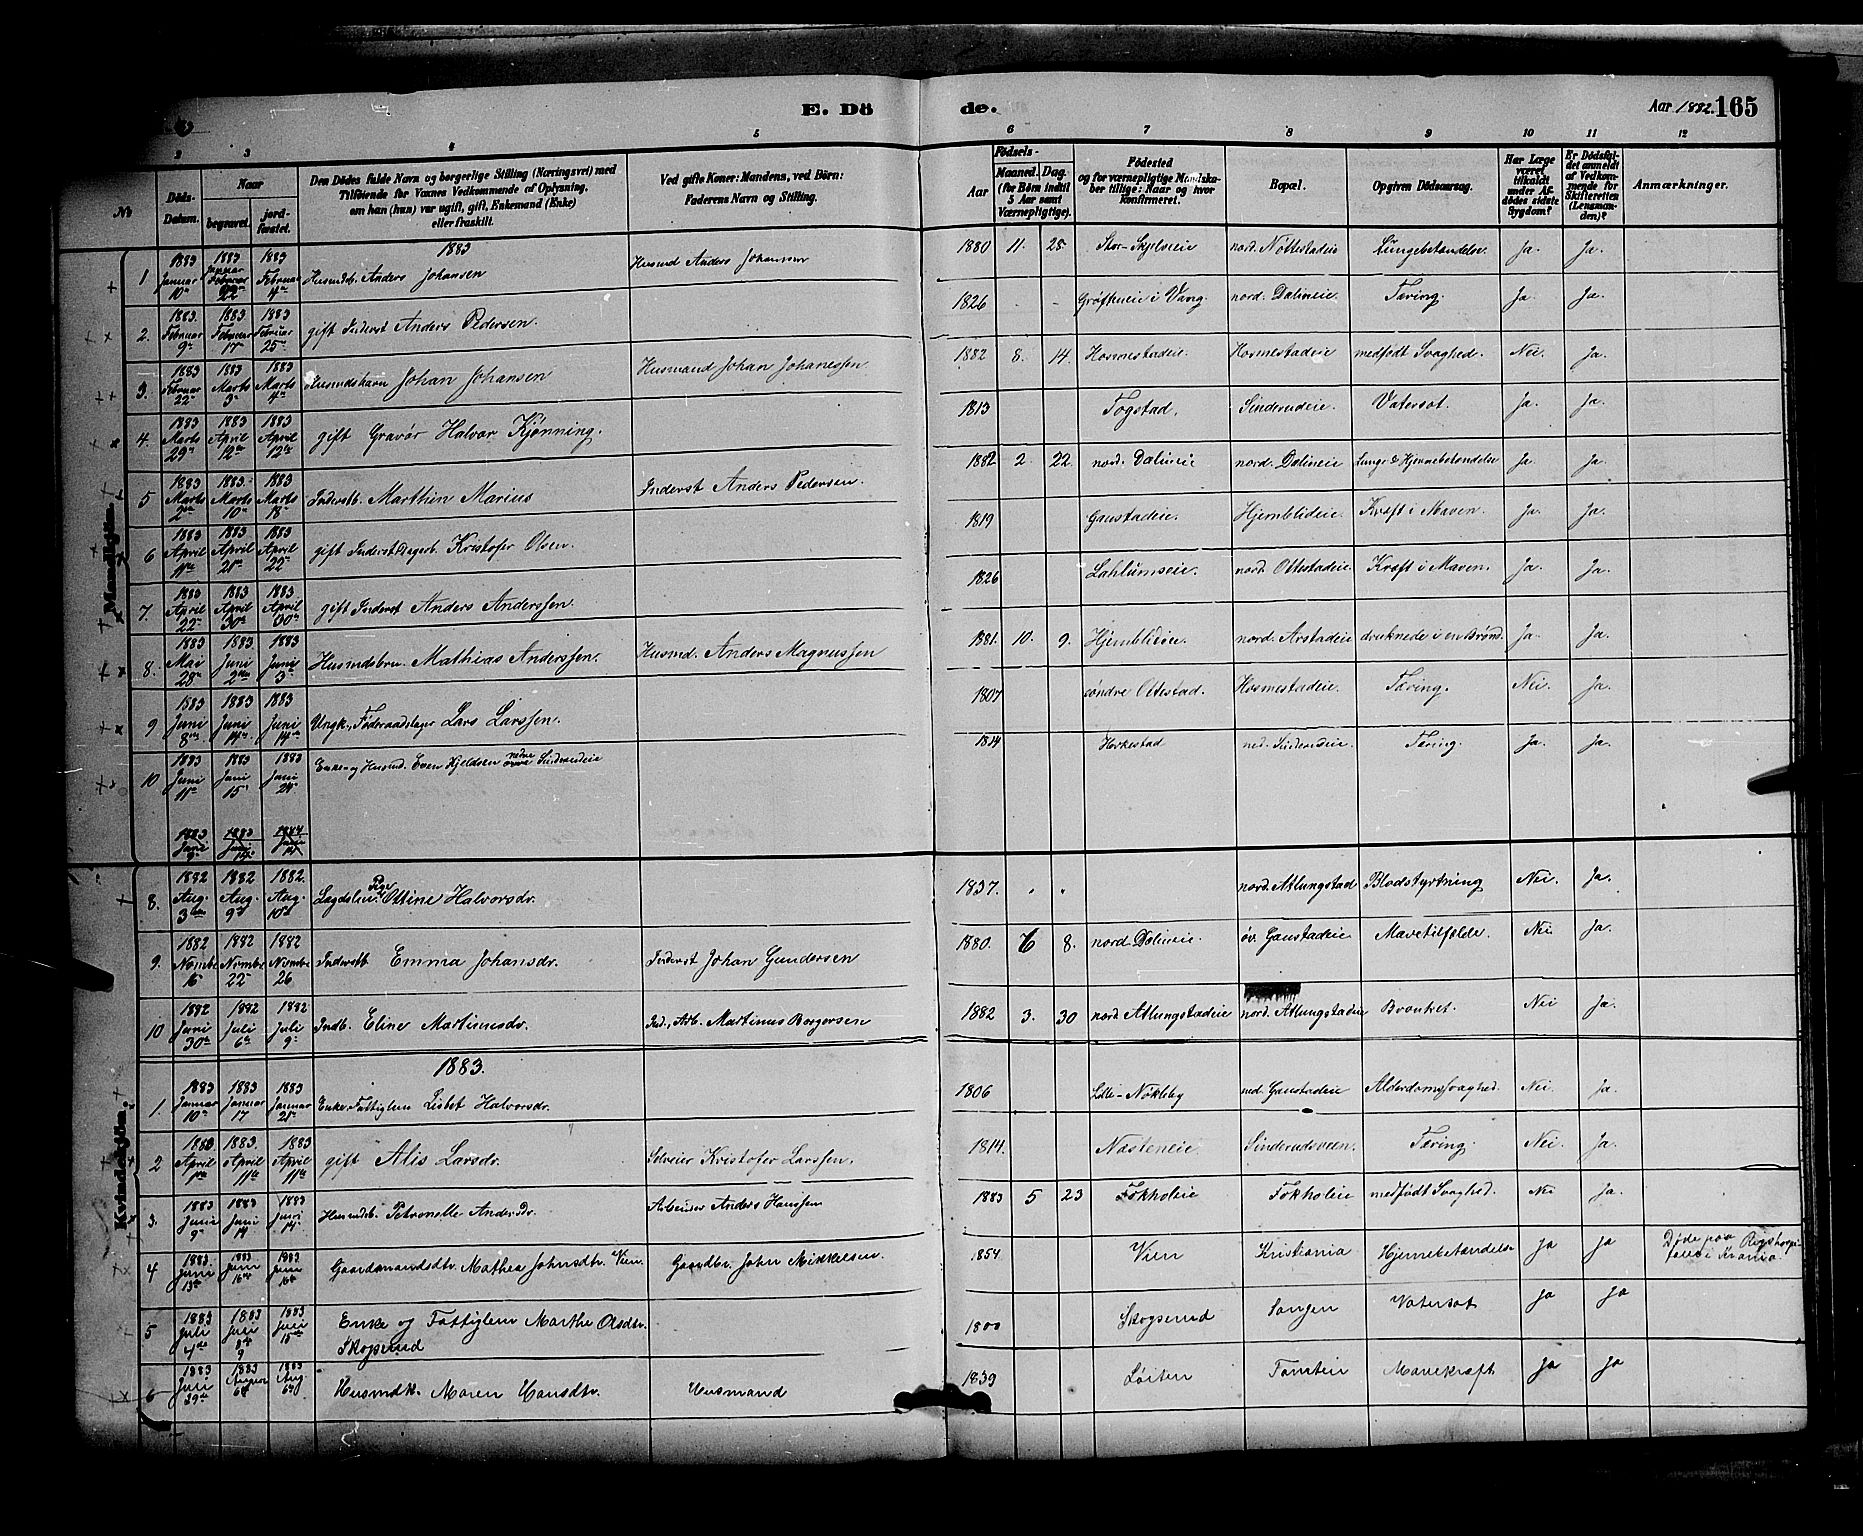 E. Dö de. Aar 1882. 165
2 3 4 5 6 7 8 9 10 11 12
No Döds-Datum. Naar begravet. jordfæstet. Den Dödes fulde Navn og borgerlige Stilling (Næringsvei) med Tilföiende for Voxnes Vedkommende af Oplysning, om han (hun) var ugift, gift, Enkemand (Enke) eller fraskilt. Ved gifte Koner: Mandens, ved Börn: Faderens Navn og Stilling. Födsels- Aar Maaned. Dag. (for Börn indtil 5 Aar samt Værnepligtige). Födested og for værnepligtige Mandskaber tillige: Naar og hvor konfirmeret. Bopæl. Opgiven Dödsaarsag. Har Læge været tilkaldt under Afdödes sidste Sygdom? Er Dödsfaldet anmeldt af Vedkommende for Skifteretten (Lensmanden)? Anmærkninger.
Mandkjön.
1883
1 1883 Januar 10de 1883 Februar 22 1883 Februar 4de Husmdsb. Anders Johansen Husmd Anders Johansen 1880 11. 25 Stor-Skjelseie nord. Nöttestadeie Lungebetændelse Ja. Ja.
2. 1883. Februar 9de 1883 Februar 17 1883 Februar 25de gift Inderst Anders Pedersen. 1826 - - Gröftheieie i Vang. nord. Dalineie. Tæring. Ja. Ja.
3. 1883 Februar 22de 1883 Marts 3de 1883 Marts 4de Husmdsbarn Johan Johansen Husmand Johan Johanessen 1882 8. 14. Hosmestadeie. Hosmestadeie medfödt Svaghed. Nei Ja.
4. 1883 Marts 29de 1883 April 12te 1883 April 12te gift Gravör Halvor Kjönning. 1813 Togstad, Sinderudeie. Vatersot. Ja. Ja.
5 1883 Marts 2den 1883. Marts 10de 1883 Marts 18de Inderstb. Marthin Marius Inderst Anders Pedersen. 1882 2. 22. nord. Dalineie nord. Dalineie Lunge & Hjernebetændelse Ja. Ja.
6 1883 April 11te 1883 April 21de 1883 April 22de gift Inderst Dagarb. Kristofer Olsen. 1819 Gaustadeie. Hjemblideie. Kræft i Maven. Ja. Ja.
7. 1883 April 22de 1883 April 30de 1883 April 30de gift Inderst Anders Anderssen. 1826 Lahlumseie. nord. Ottestadeie Kræft i Maven. Ja. Ja.
8. 1883 Mai 28de 1883 Juni 2den 1883 Juni 3de Husmdsbrn. Mathias Anderssen. Husmd. Anders Magnussen 1881. 10. 9. Hjemblideie. nord. Arstadeie druknede i en Brönd. Ja. Ja.
9 1883 Juni 8de 1883 Juni 14de 1883 Juni 14de Ungk., Föderaadstager Lars Larssen. 1807 söndre Ottestad. Hosmestadeie. Tæring. Nei. Ja.
10 1883 Juni 11te 1883 Juni 15de 1883 Juni 24de Enkem. og Husmd. Even Kjeldsen nedre Sinderudeie 1814 Horkestad ned. Sinderudeie. Tæring. Ja. Ja.
1883 Juni 9de 1883 Juni 14de 1884 Juni 14
Kvindekjön.
8. 1882 Aug. 3die 1882 Aug. 9de 1882. Aug. 10de Lægdslem Pige Ottine Halvorsdr. 1837. nord. Atlungstad Blodstyrtning Nei. Ja.
9. 1882 Novmbr 16 1882 Novmbr 22de 1882 Novmbr 26 Inderstb Emma Johansdr. Inderst Johan Gundersen 1880. 6 8. nord. Dalineie. öv. Gaustadeie Mavetilfælde. Nei Ja.
10 1882 Juni 30de 1882 Juli 6te 1882 Juli 9de Indb. Eline Martinusdr. Ind., Arb. Martinus Borgersen 1882 3. 30 nord. Atlungstadeie nord. Atlungstadeie Bronket. Nei Ja.
1883.
1. 1883 Januar 10de 1883 Januar 17 1883 Januar 21de Enke, Fattiglem Lisbet Halvorsdr. 1806 Lille-Nökleby ned. Gaustadeie Alderdomssvaghed. Nei Ja.
2 1883 April 1ste 1883. April 11te 1883 April 11te gift Alis Larsdr. Selveier Kristofer Larssen. 1814. Næsteneie. Sinderudsveen. Tæring. Nei. Ja.
3. 1883 Juni 9de 1883 Juni 14 1883 Juni 14de Husmdsb. Petronelle Andersdr. Arbeider Anders Hanssen 1883 5 23 Fokholeie Fokholeie medfödt Svaghed. Nei Ja.
4 1883. Juni 13de 1883 Juni 16de 1883 Juni 16de Gaardmandsdtr. Mathea Johnsdtr. Vien. Gaardbr. John Mikkelsen. 1854 Vien Kristiania Hjernebetændelse Ja Ja Döde paa Rigshospitalet i Krania.
5 1883 Juli 4de 1883 Juli 9 1883 Juli 15de Enke og Fattiglem Marthe Olsdtr. Skogsrud 1800 Skogsrud Sangen Vatersot Ja Ja
6 1883 Juli 29de 1883 August 6te 1883 Aug 6te Husmdk. Maren Hansdtr. Husmand 1839 Löiten Tomten Mavekræft. Ja Ja